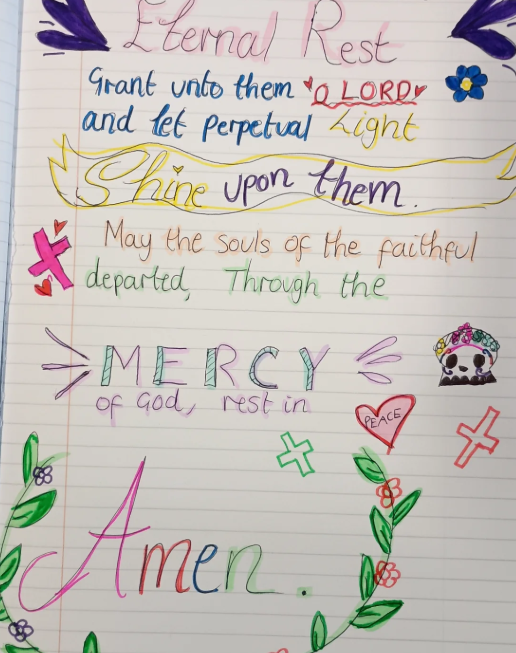 Eternal Rest
Grant unto them O LORD
and let perpetual Light
Shine upon them.
May the souls of the faithful
departed, Through the
MERCY
of God, rest in
PEACE
Amen.